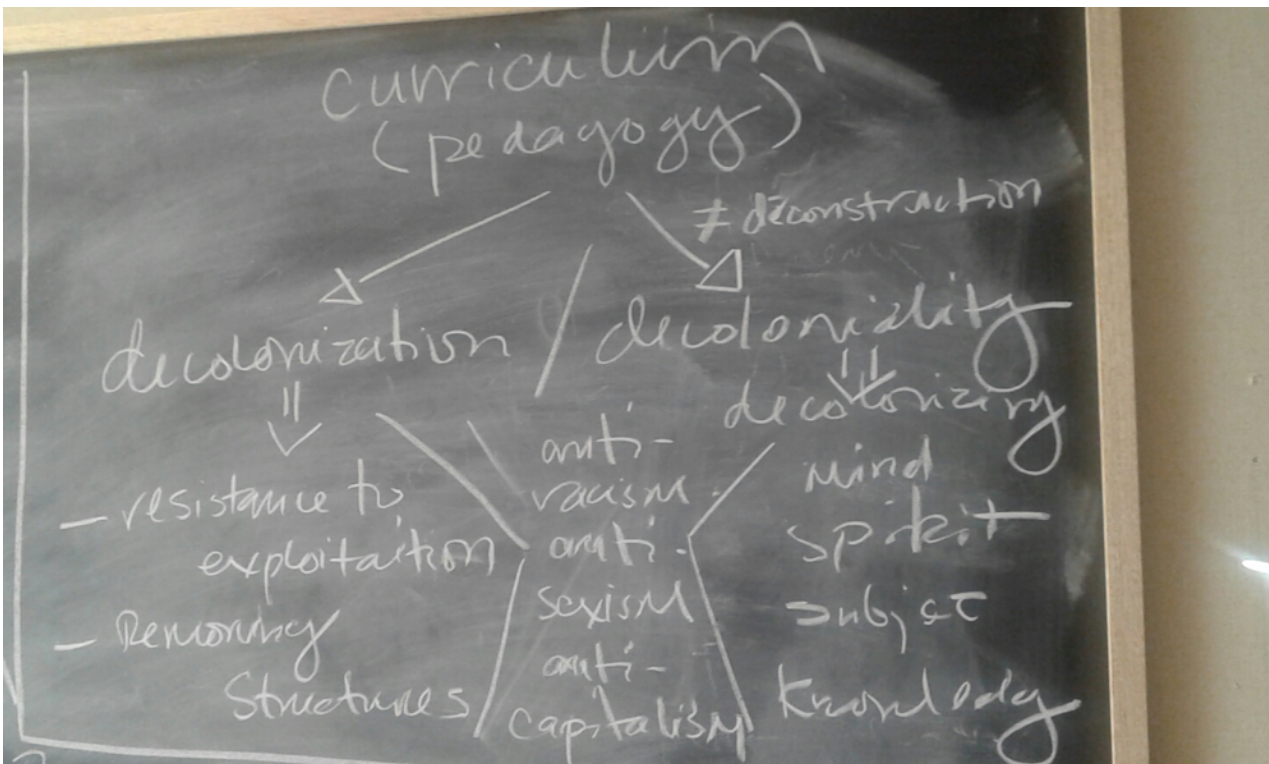 curriculum
(pedagogy)
≠ deconstruction
decolonization / decoloniality
- resistance to
exploitaition
- Removing
Structures
anti-
racism
anti-
sexism
anti-
capitalism
decolonizing
mind
spirit
subject
Knowledg